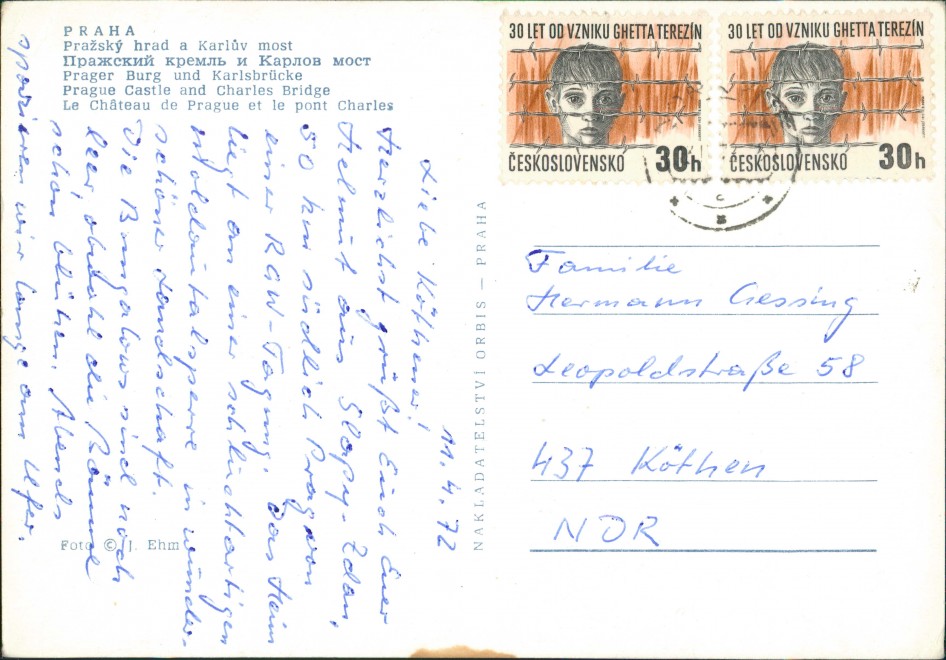 PRAHA
Pražský hrad a Karlův most
Пражский кремль и Карлов мост
Prager Burg und Karlsbrücke
Prague Castle and Charles Bridge
Le Château de Prague et le pont Charles
30 LET OD VZNIKU GHETTA TEREZÍN
ČESKOSLOVENSKO 30h
30 LET OD VZNIKU GHETTA TEREZÍN
ČESKOSLOVENSKO 30h
11.4.72
Liebe Köthener!
Herzlichst grüßt Euch Euer
Helmut aus Slapy-Ždan,
50 km südlich Prag von
einer RGW-Tagung. Das Heim
liegt an einer schluchtartigen
Moldautalsperre in wunder-
schöner Landschaft.
Die Bungalows sind noch
leer obwohl die Bäume
schon blühen. Abends
spazieren wir lange am Ufer.
Foto © J. Ehm
NAKLADATELSTVÍ ORBIS — PRAHA
Familie
Hermann Giessing
Leopoldstraße 58
437 Köthen
NDR